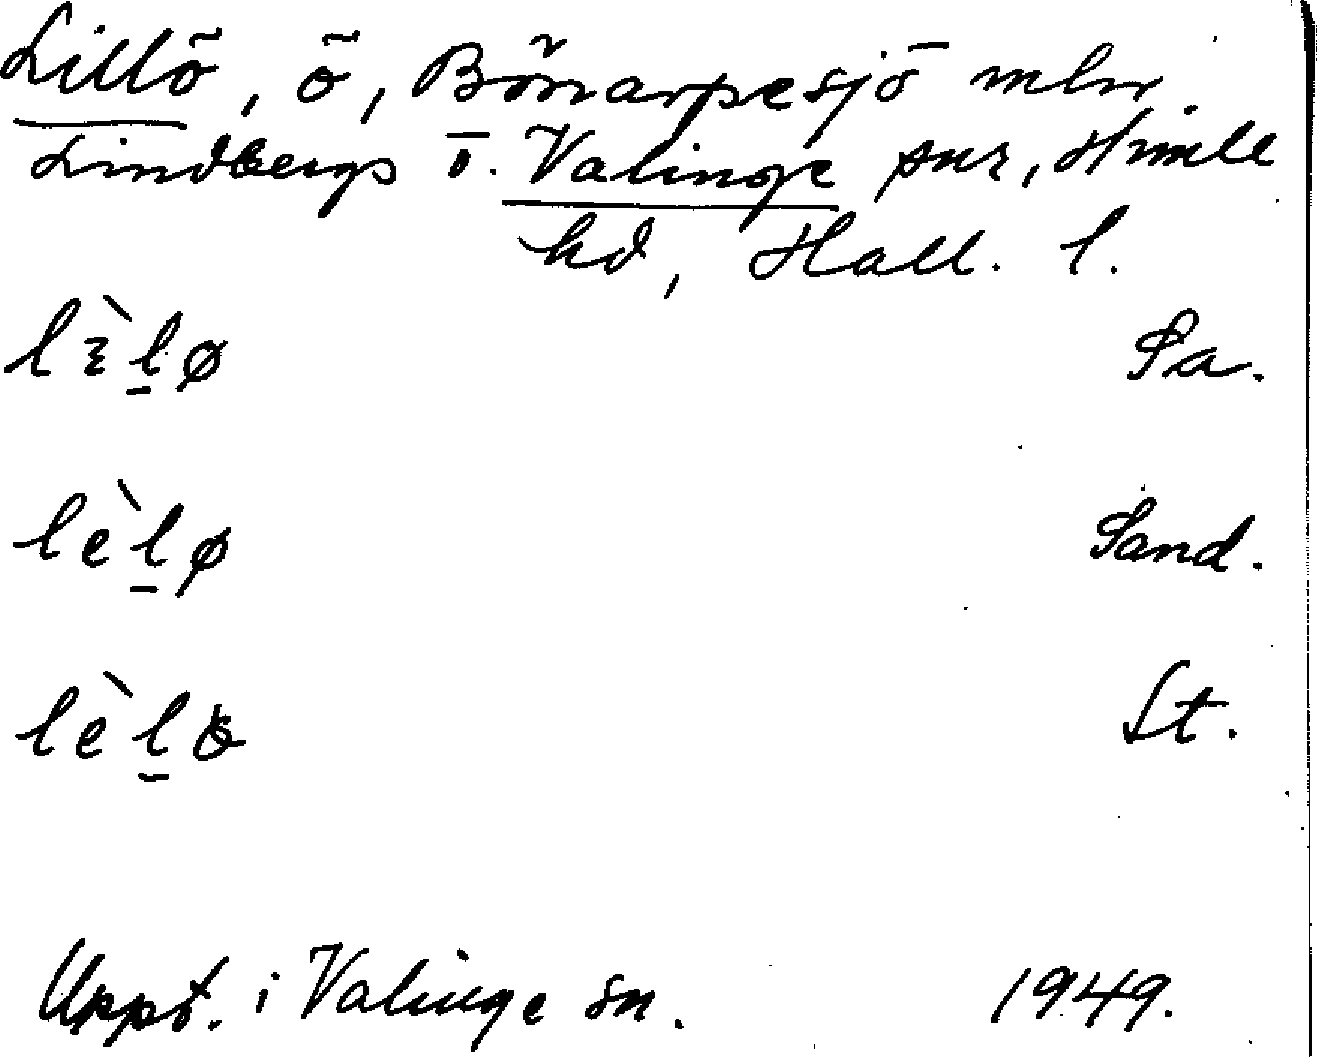 Lillö, ö, Bönarpesjö mln.
Lindbergs o. Valinge snr, Himle
hd, Hall. l.
lɛ̀l̠ø Sa.
lèl̠ø Sand.
lèl̠ St.
Uppt. i Valinge sn. 1949.